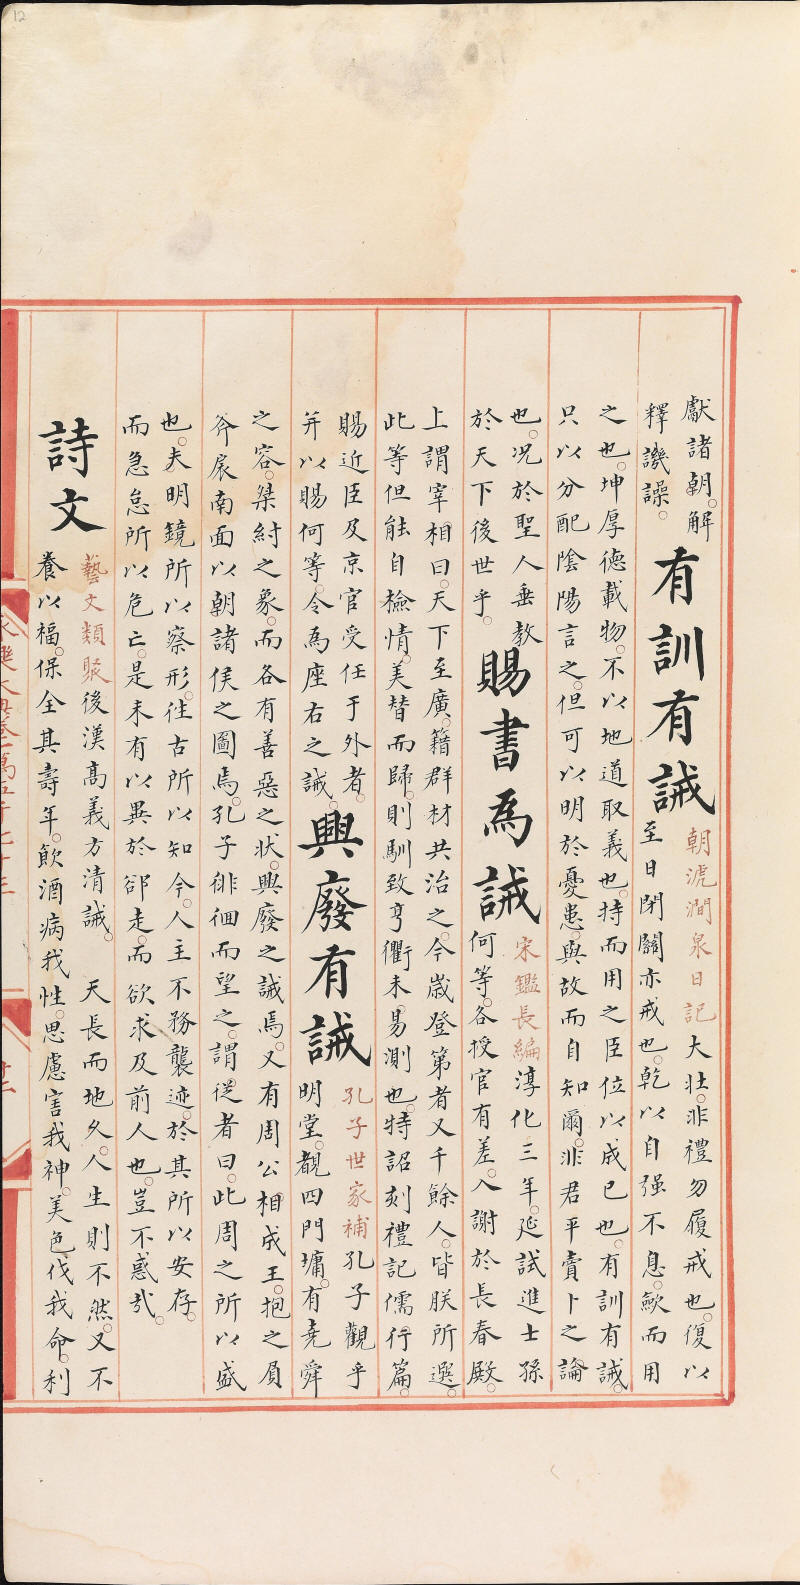 獻諸朝。解
釋譏譟。
有訓有誡
朝漉澗泉日記大壯。非禮勿履戒也。復以
至日閉關亦戒也。乾以自强不息。歟而用
之也。坤厚德載物。不以地道取義也。持而用之臣位以成已也。有訓有誡。
只以分配陰陽言之。但可以明於憂患。與故而自知爾。非君平賣卜之論
也。况於聖人垂教
於天下後世乎。
賜書為誡
宋鑑長編淳化三年。延試進士孫
何等。各授官有差。入謝於長春殿。
上謂宰相曰。天下至廣。籍群材共治之。今歲登第者又千餘人。皆朕所選。
此等但能自檢情。美替而歸。則馴致亨衢未易測也。特詔刻禮記儒行篇。
賜近臣及京官受任于外者。
并以賜何等。令為座右之誡。
興廢有誡
孔子世家補孔子觀乎
明堂。覩四門墉。有堯舜
之容。桀紂之象。而各有善惡之狀。興廢之誡焉。又有周公相成王。抱之負
斧扆南面以朝諸侯之圖焉。孔子徘徊而望之。謂從者曰。此周之所以盛
也。夫明鏡所以察形。往古所以知今。人主不務襲迹。於其所以安存。
而急怠所以危亡。是未有以異於郤走。而欲求及前人也。豈不惑哉。
詩文
藝文類聚後漢高義方清誡。 天長而地久。人生則不然。又不
養以福。保全其壽年。飲酒病我性。思慮害我神。美色伐我命。利
永樂大典卷一萬五千七十三
十二
12